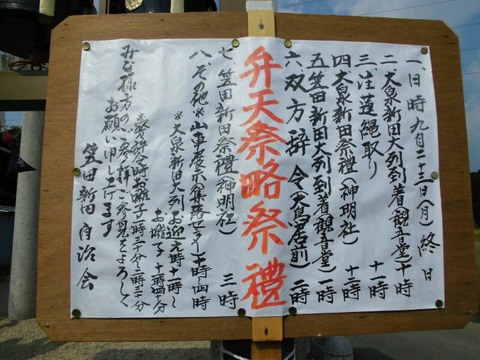 一、日時 九月二十三日(月)終日
二 大泉新田大列到着(観音堂)十時
三 注連縄取り 十一時
四 大泉新田祭禮(神明社) 十二時
五 笠田新田大列到着(観音堂)一時
六 双方辞令(大鳥居前)二時
弁天祭略祭禮
七 笠田新田祭禮(神明社) 三時
八 その他※山車展示(集落センター)十時~四時
※大泉新田大列お迎え九時十一時~
お囃子 十時四十分
※祭辞令時お囃子一時三十分~二時三十分
みな様方のご参拝ご参見をよろしく
お願い申し上げます
笠田新田自治会